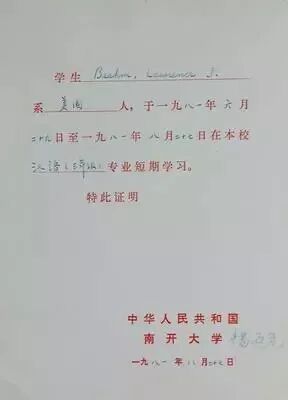 学生 Brahm, Laurence J.
系 美国 人，于一九八一年六月
二十九日至一九八一年八月二十七日在本校
汉语 专业短期学习。
特此证明
中华人民共和国
南开大学
一九八一年八月二十七日